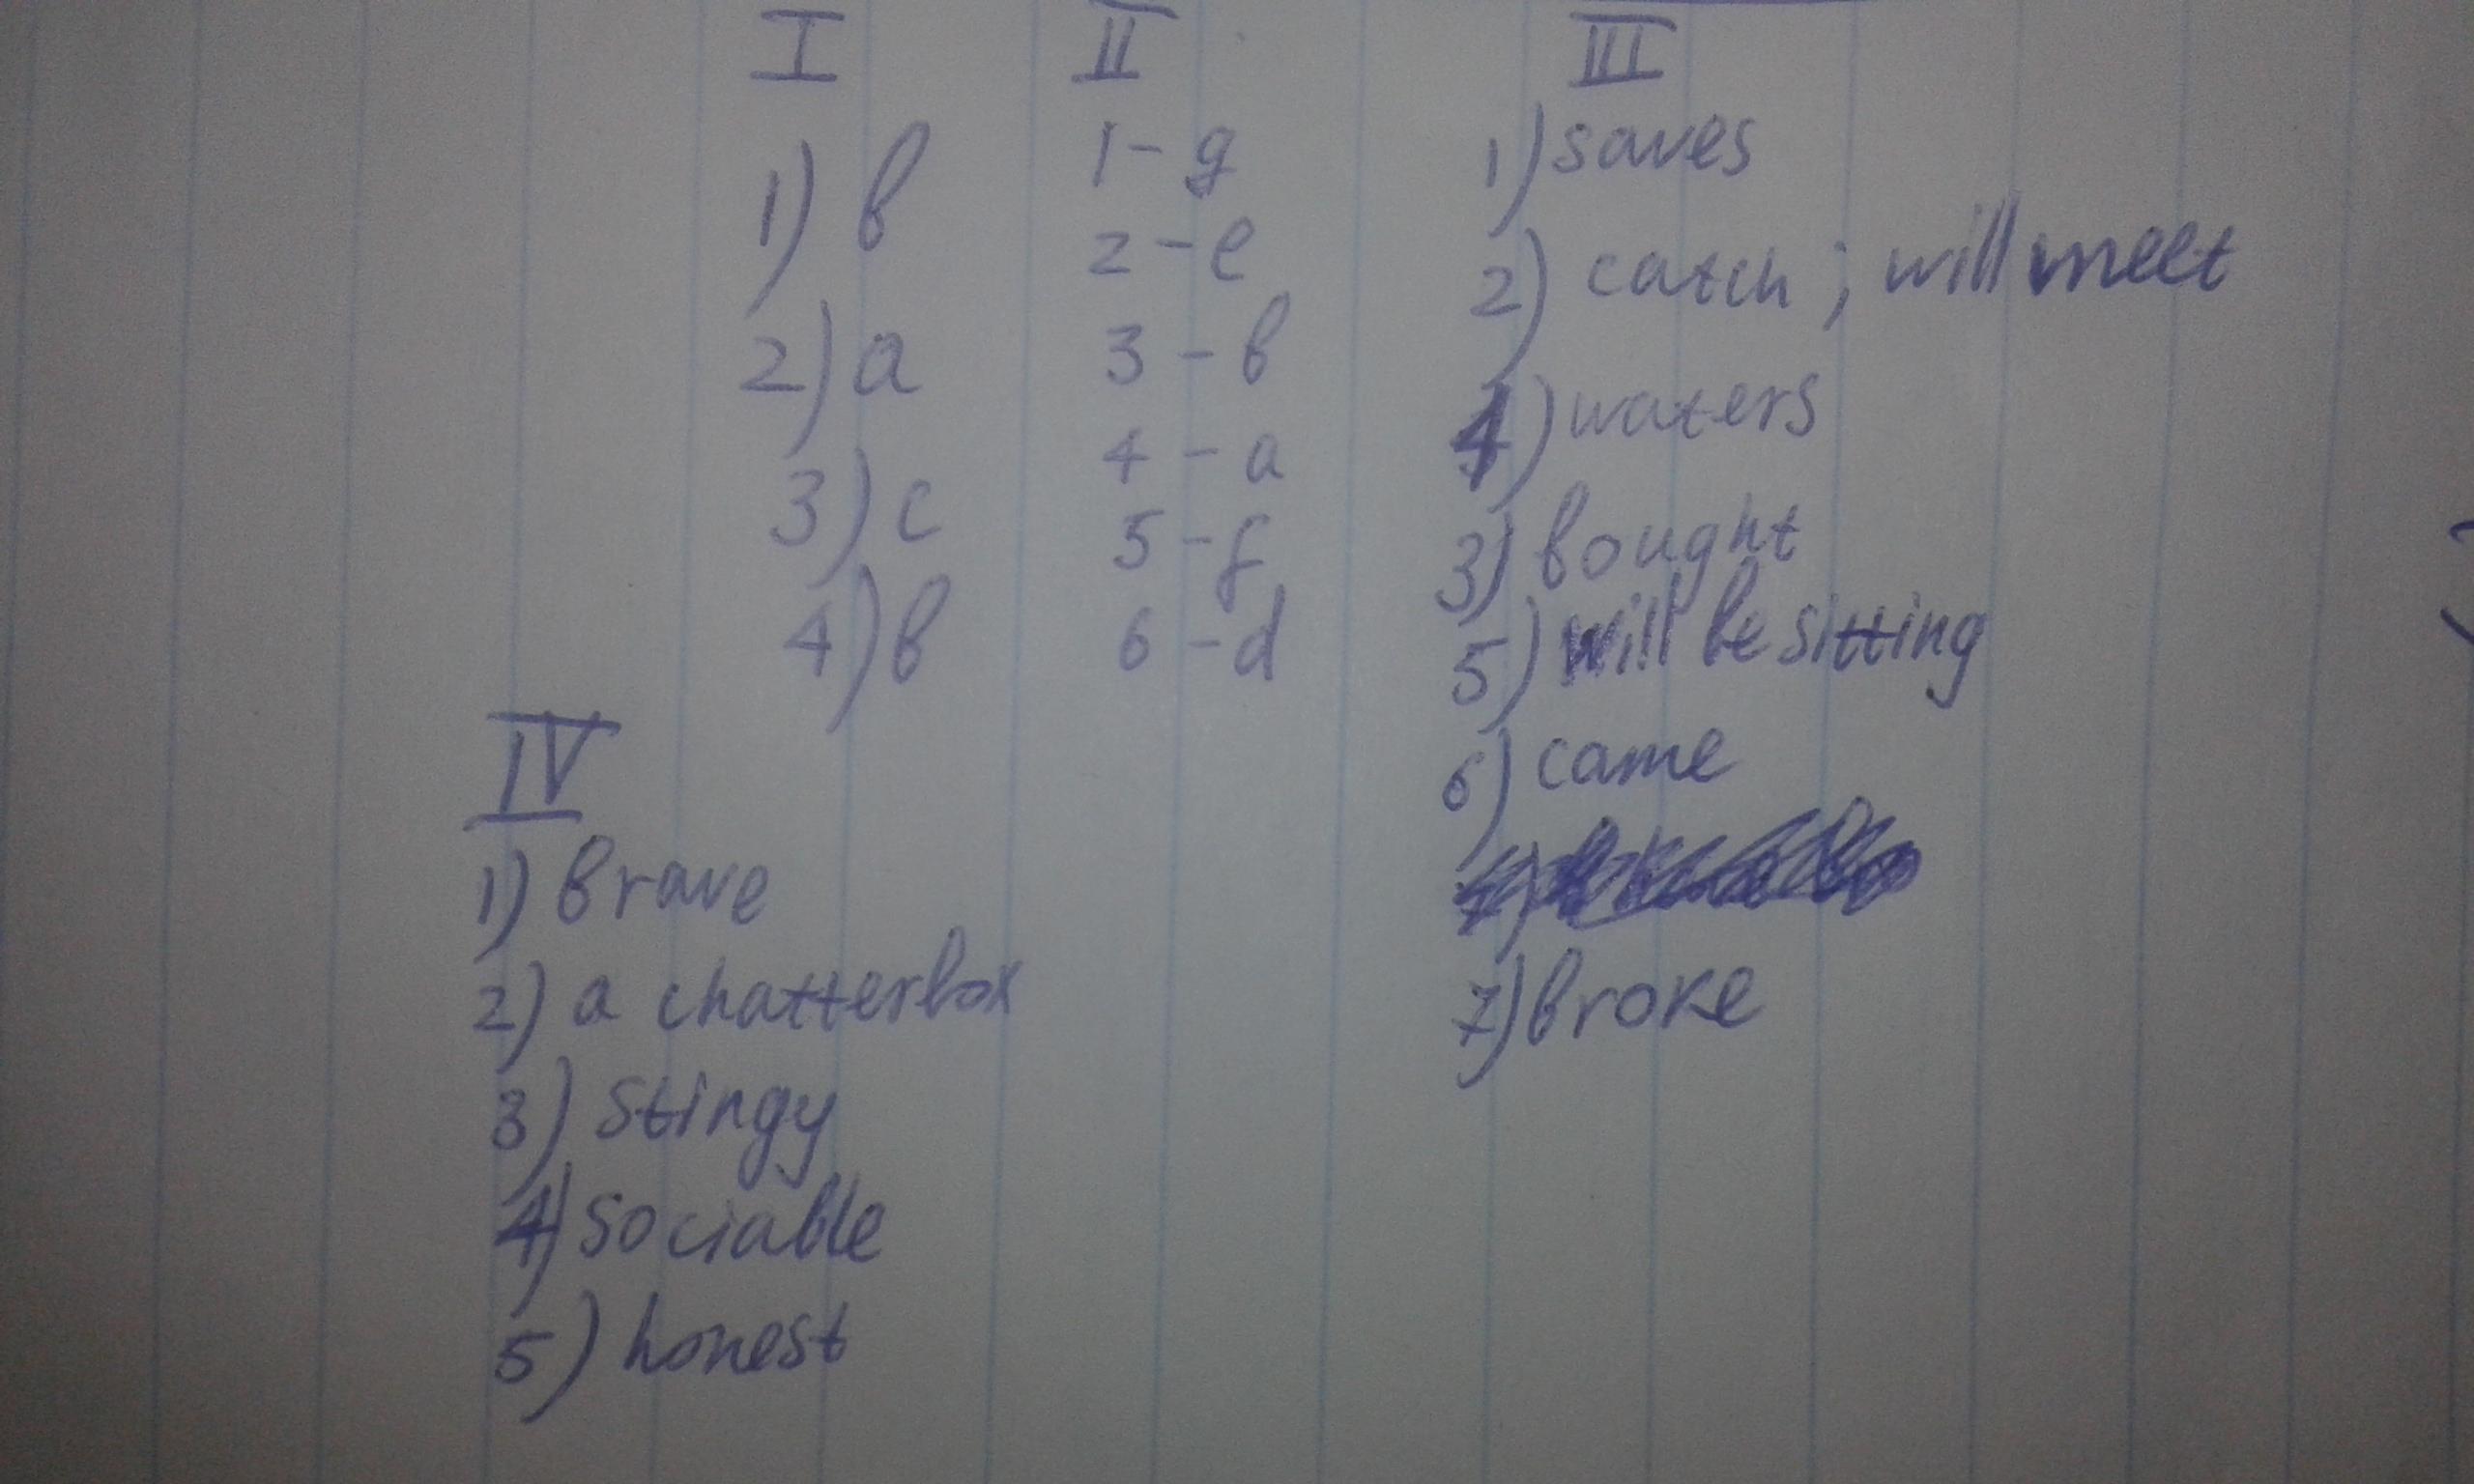 I
1) b
2) a
3) c
4) b
II
1 - g
2 - e
3 - b
4 - a
5 - f
6 - d
III
1) saves
2) catch ; will meet
4) waters
3) bought
5) will be sitting
6) came
7) broke
IV
1) brave
2) a chatterbox
3) stingy
4) sociable
5) honest